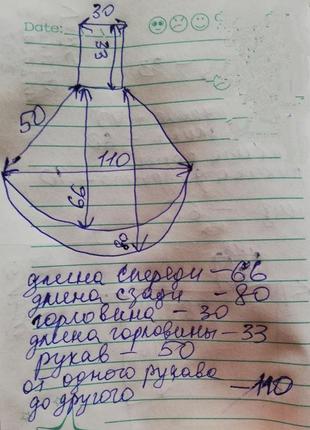 Date:
30
33
50
110
66
80
длина спереди - 66
длина сзади - 80
горловина - 30
длина горловины - 33
рукав - 50
от одного рукава
до другого - 110